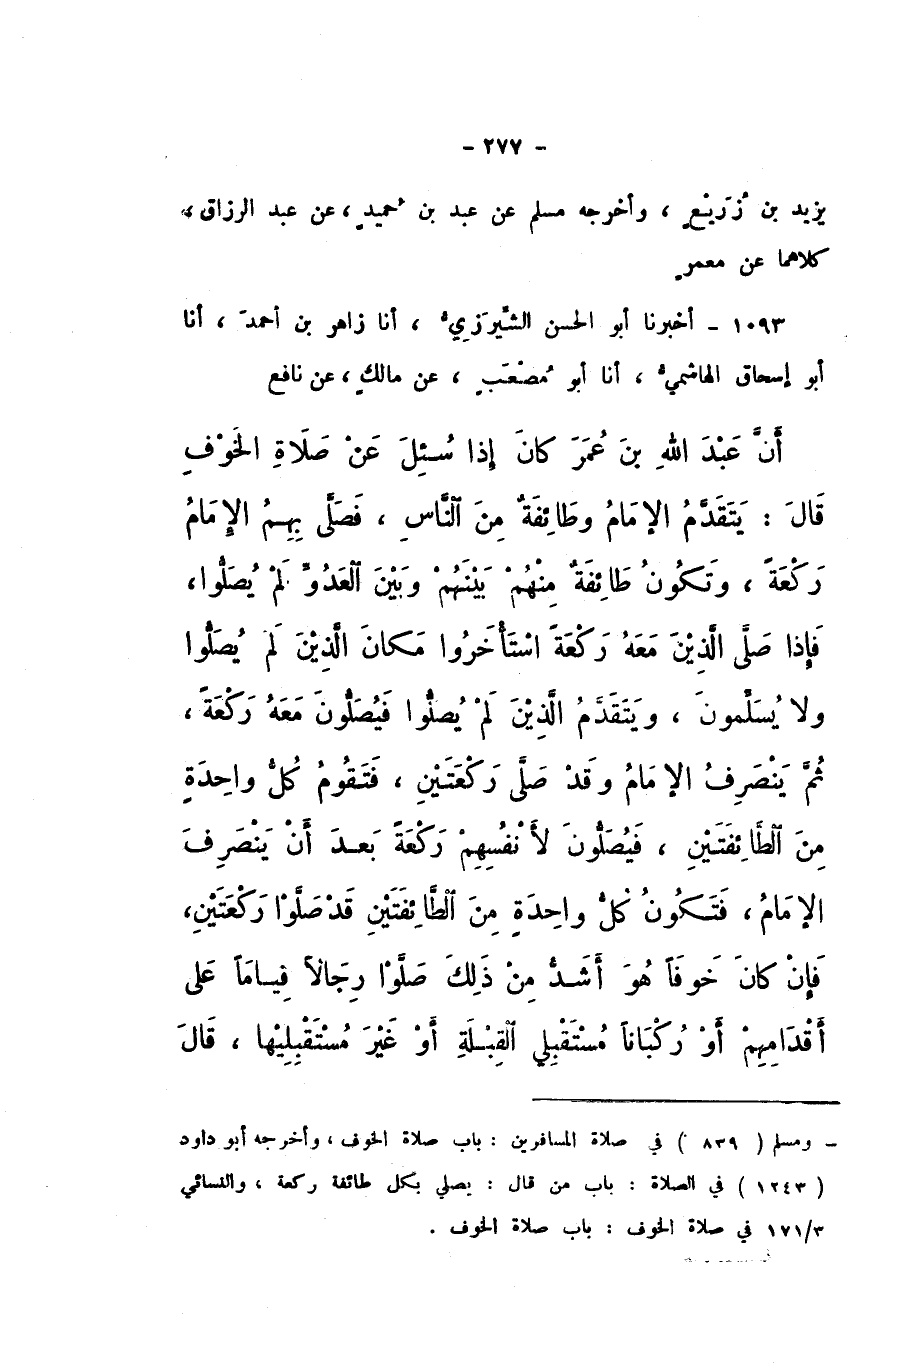 - ٢٧٧ -
يزيد بن زُرَيْعٍ ، وأخرجه مسلم عن عبد بن حُميدٍ ، عن عبد الرزاق ،
كلاهما عن معمرٍ
١٠٩٣ - أخبرنا أبو الحسن الشِّيرَزيُّ ، أنا زاهر بن أحمدَ ، أنا
أبو إسحاق الهاشميُّ ، أنا أبو مُصْعَبٍ ، عن مالكٍ ، عن نافع
أَنَّ عَبْدَ اللهِ بنَ عُمَرَ كانَ إذا سُئِلَ عَنْ صَلَاةِ الخَوْفِ
قَالَ : يَتَقَدَّمُ الإمَامُ وطَائِفَةٌ مِنَ النَّاسِ ، فَصَلَّى بِهِمُ الإمَامُ
رَكْعَةً ، وتَكُونُ طَائِفَةٌ مِنْهُمْ بَيْنَهُمْ وبَيْنَ الْعَدُوِّ لَمْ يُصَلُّوا،
فَإذا صَلَّى الَّذِيْنَ مَعَهُ رَكْعَةً اسْتَأْخَرُوا مَكانَ الَّذِيْنَ لَمْ يُصَلُّوا
ولا يُسَلِّمونَ ، ويَتَقَدَّمُ الَّذِيْنَ لَمْ يُصلُّوا فَيُصَلُّونَ مَعَهُ رَكْعَةً ،
ثُمَّ يَنْصَرِفُ الإمَامُ وقَدْ صَلَّى رَكْعَتَيْنِ ، فَتَقُومُ كُلُّ واحِدَةٍ
مِنَ الْطَّائِفَتَيْنِ ، فَيُصَلُّونَ لأَنْفُسِهِمْ رَكْعَةً بَعدَ أَنْ يَنْصَرِفَ
الإمَامُ ، فَتَكُونُ كُلُّ واحِدَةٍ مِنَ الْطَّائِفَتَيْنِ قَدْ صَلَّوْا رَكْعَتَيْنِ،
فَإنْ كانَ خَوفَاً هُوَ أَشَدُّ مِنْ ذَلِكَ صَلَّوْا رِجَالاً قيامَاً عَلى
أَقْدَامِهِمْ أَوْ رُكْبَاناً مُسْتَقْبِلي الْقِبْلَةِ أَوْ غَيْرَ مُسْتَقْبِلِيْها ، قَالَ
- ومسلم ( ٨٣٩ ) في صلاة المسافرين : باب صلاة الخوف ، وأخرجه أبو داود
( ١٢٤٣ ) في الصلاة : باب من قال : يصلي بكل طائفة ركعة ، والنسائي
١٧١/٣ في صلاة الخوف : باب صلاة الخوف .